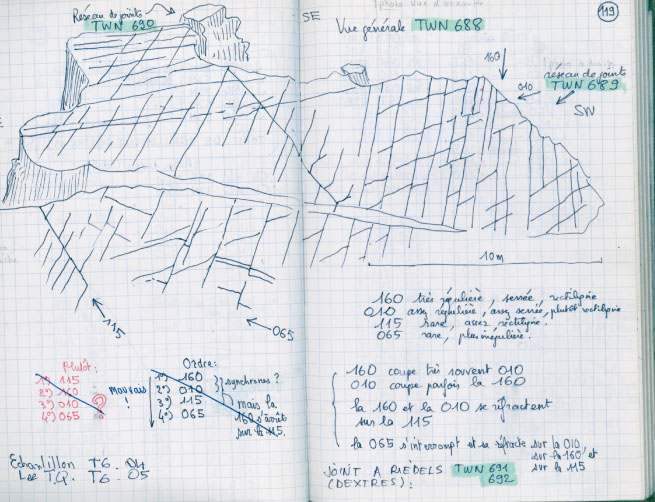 Réseau de joints
TWN 690
SE
Vue générale TWN 688
119
160
010
réseau de joints
TWN 689
SW
10m
115
065
160 très régulière, serrée, rectiligne
010 assez régulière, assez serrée, plutôt rectiligne
115 rare, assez rectiligne.
065 rare, plus irrégulière.
Plutôt:
1°) 115
2°) 160
3°) 010
4°) 065
?
Mauvais
!
Ordre:
1°) 160
2°) 010
3°) 115
4°) 065
synchrones ?
mais la
160 s'arrête
sur la 115.
160 coupe très souvent 010
010 coupe parfois la 160
la 160 et la 010 se réfractent
sur la 115
la 065 s'interrompt et se réfracte sur la 010,
sur la 160 et
sur la 115
Echantillon TG. 04
TG. 05
JOINT A RIEDELS TWN 691
(DEXTRES): 692